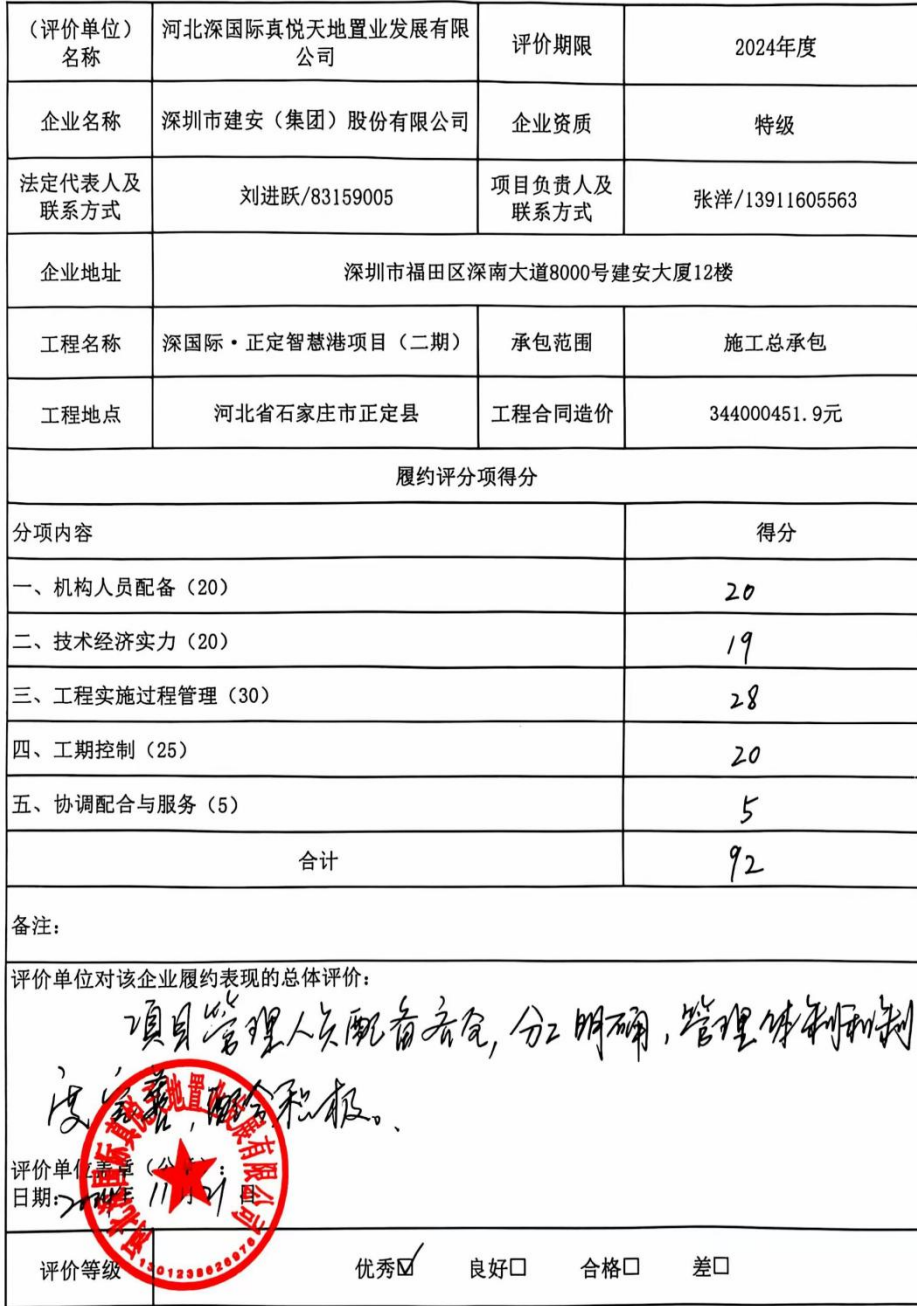 （评价单位）名称 河北深国际真悦天地置业发展有限公司 评价期限 2024年度
企业名称 深圳市建安（集团）股份有限公司 企业资质 特级
法定代表人及联系方式 刘进跃/83159005 项目负责人及联系方式 张洋/13911605563
企业地址 深圳市福田区深南大道8000号建安大厦12楼
工程名称 深国际·正定智慧港项目（二期） 承包范围 施工总承包
工程地点 河北省石家庄市正定县 工程合同造价 344000451.9元
履约评分项得分
分项内容 得分
一、机构人员配备（20） 20
二、技术经济实力（20） 19
三、工程实施过程管理（30） 28
四、工期控制（25） 20
五、协调配合与服务（5） 5
合计 92
备注：
评价单位对该企业履约表现的总体评价：
项目管理人员配备齐全，分工明确，管理体制和制
度完善，配合积极。
评价单位盖章（公章）：
日期：2024年11月21日
河北深国际真悦天地置业发展有限公司
评价等级 优秀☑ 良好☐ 合格☐ 差☐